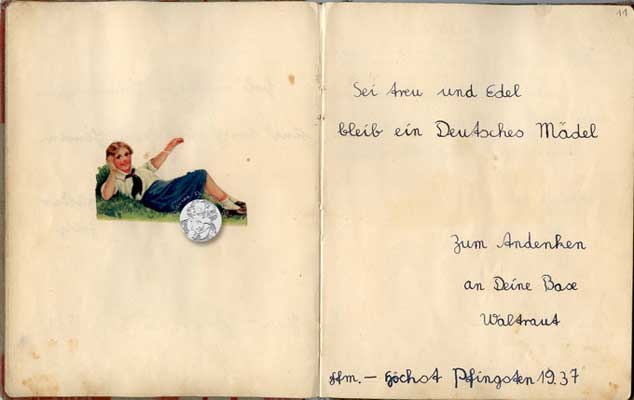 11
Sei treu und Edel
bleib ein Deutsches Mädel
Zum Andenken
an Deine Base
Waltraut
Ffm. – Höchst Pfingsten 1937